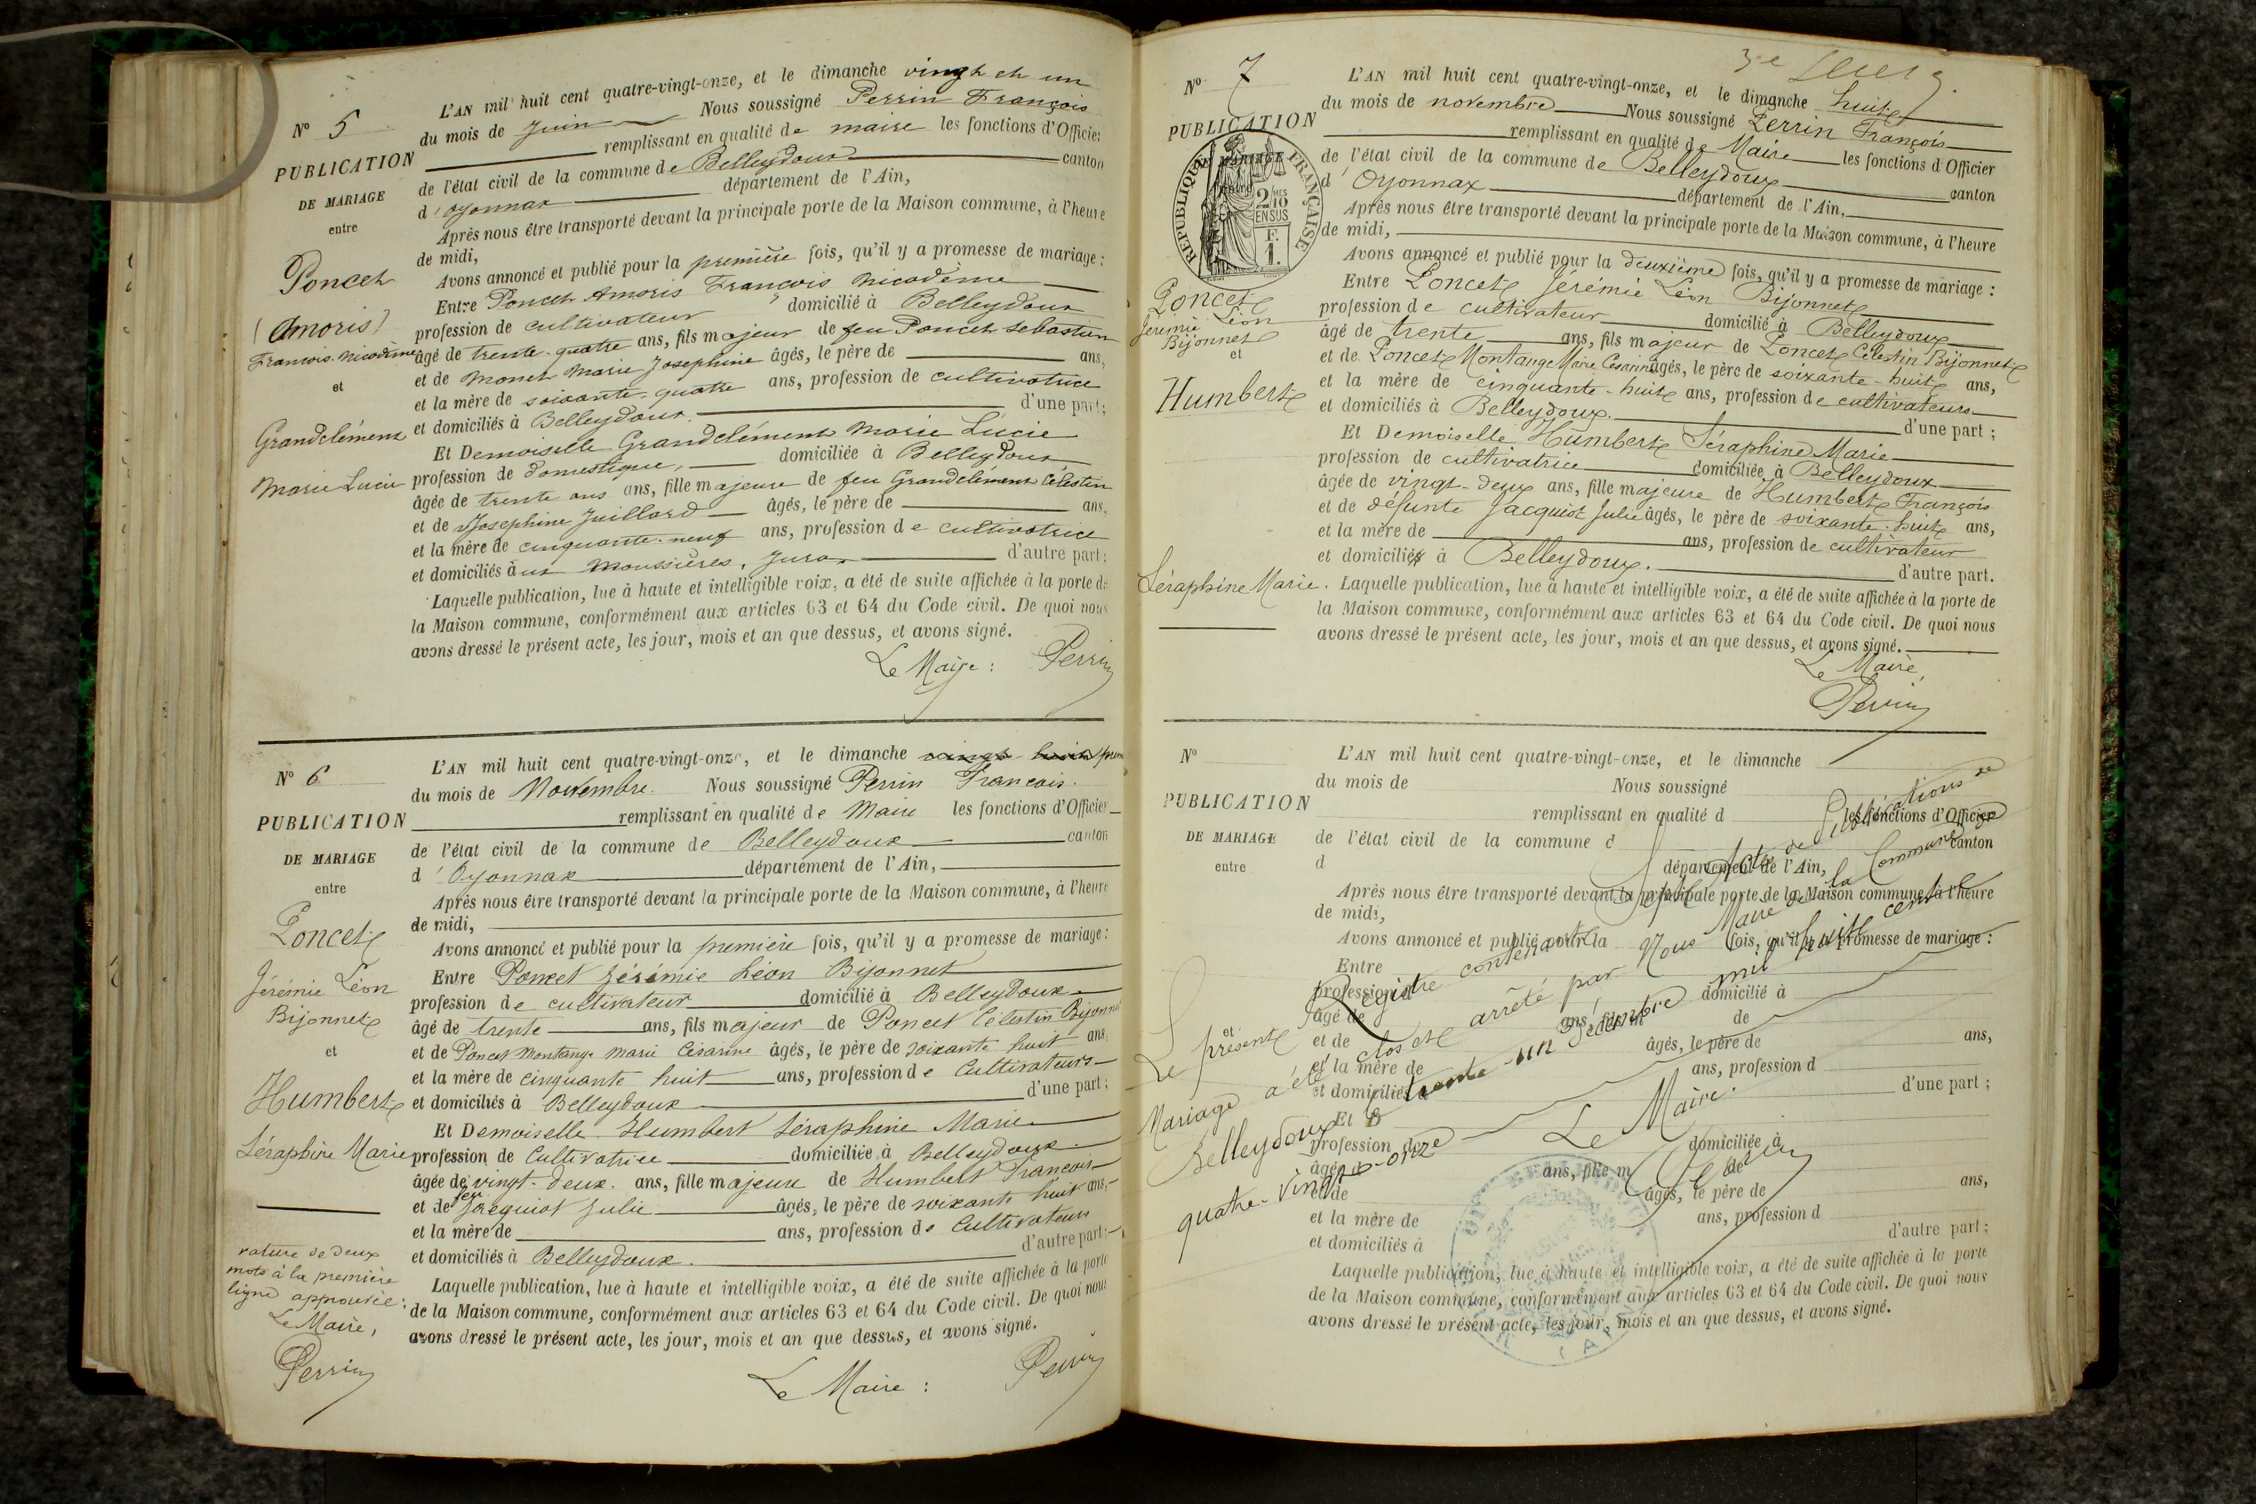 N° 5
PUBLICATION
DE MARIAGE
entre
Poncet
(Amoris)
François Nicodème
et
Grandclément
Marie Lucie
L'AN mil huit cent quatre-vingt-onze, et le dimanche vingt et un
du mois de Juin Nous soussigné Perrin François
remplissant en qualité de maire les fonctions d'Officier
de l'état civil de la commune de Belleydoux canton
d'Oyonnax département de l'Ain,
Après nous être transporté devant la principale porte de la Maison commune, à l'heure
de midi,
Avons annoncé et publié pour la première fois, qu'il y a promesse de mariage :
Entre Poncet Amoris François Nicodème
profession de cultivateur domicilié à Belleydoux
âgé de trente-quatre ans, fils majeur de feu Poncet Sébastien
et de Monet Marie Josephine âgés, le père de ans,
et la mère de soixante-quatre ans, profession de cultivatrice
et domiciliés à Belleydoux d'une part ;
Et Demoiselle Grandclément Marie Lucie
profession de domestique, domiciliée à Belleydoux
âgée de trente ans ans, fille majeure de feu Grandclément Célestin
et de Josephine Juillard âgés, le père de ans,
et la mère de cinquante-neuf ans, profession de cultivatrice
et domiciliés à ux moussières, Jura, d'autre part ;
Laquelle publication, lue à haute et intelligible voix, a été de suite affichée à la porte de
la Maison commune, conformément aux articles 63 et 64 du Code civil. De quoi nous
avons dressé le présent acte, les jour, mois et an que dessus, et avons signé.
Le Maire : Perrin
N° 6
PUBLICATION
DE MARIAGE
entre
Poncet
Jérémie Léon
Bijonnet
et
Humbert
Séraphine Marie
rature de deux
mots à la première
ligne approuvée :
Le Maire,
Perrin
L'AN mil huit cent quatre-vingt-onze, et le dimanche vingt huit
du mois de Novembre. Nous soussigné Perrin Francois.
remplissant en qualité de Maire les fonctions d'Officier
de l'état civil de la commune de Belleydoux canton
d'Oyonnax département de l'Ain,
Après nous être transporté devant la principale porte de la Maison commune, à l'heure
de midi,
Avons annoncé et publié pour la première fois, qu'il y a promesse de mariage :
Entre Poncet Jérémie Léon Bijonnet
profession de cultivateur domicilié à Belleydoux
âgé de trente ans, fils majeur de Poncet Célestin Bijonnet
et de Poncet Montange Marie Césarine âgés, le père de soixante huit ans
et la mère de cinquante huit ans, profession de Cultivateurs
et domiciliés à Belleydoux d'une part ;
Et Demoiselle Humbert Séraphine Marie
profession de Cultivatrice domiciliée à Belleydoux
âgée de vingt-deux ans, fille majeure de Humbert Francois
et de feu Jacquiot Julie âgés, le père de soixante huit ans,
et la mère de ans, profession de Cultivateur
et domiciliés à Belleydoux. d'autre part ;
Laquelle publication, lue à haute et intelligible voix, a été de suite affichée à la porte
de la Maison commune, conformément aux articles 63 et 64 du Code civil. De quoi nous
avons dressé le présent acte, les jour, mois et an que dessus, et avons signé.
Le Maire : Perrin
N° 7
PUBLICATION
DE MARIAGE
REPUBLIQUE FRANÇAISE
2/10
EN SUS
F.
1.
Poncet
Jérémie Léon
Bijonnet
et
Humbert
Séraphine Marie.
L'AN mil huit cent quatre-vingt-onze, et le dimanche huit
du mois de novembre Nous soussigné Perrin François
remplissant en qualité de Maire les fonctions d'Officier
de l'état civil de la commune de Belleydoux canton
d'Oyonnax département de l'Ain,
Après nous être transporté devant la principale porte de la Maison commune, à l'heure
de midi,
Avons annoncé et publié pour la deuxième fois, qu'il y a promesse de mariage :
Entre Poncet Jérémie Léon Bijonnet
profession de cultivateur domicilié à Belleydoux
âgé de trente ans, fils majeur de Poncet Célestin Bijonnet
et de Poncet Montange Marie Césarine âgés, le père de soixante-huit ans,
et la mère de cinquante-huit ans, profession de cultivateurs
et domiciliés à Belleydoux. d'une part ;
Et Demoiselle Humbert Séraphine Marie
profession de cultivatrice domiciliée à Belleydoux
âgée de vingt-deux ans, fille majeure de Humbert François
et de défunte Jacquiot Julie âgés, le père de soixante-huit ans,
et la mère de ans, profession de cultivateur
et domiciliés à Belleydoux. d'autre part.
Laquelle publication, lue à haute et intelligible voix, a été de suite affichée à la porte de
la Maison commune, conformément aux articles 63 et 64 du Code civil. De quoi nous
avons dressé le présent acte, les jour, mois et an que dessus, et avons signé.
Le Maire,
Perrin
N°
PUBLICATION
DE MARIAGE
entre
et
L'AN mil huit cent quatre-vingt-onze, et le dimanche
du mois de Nous soussigné
remplissant en qualité d les fonctions d'Officier
de l'état civil de la commune d canton
d département de l'Ain,
Après nous être transporté devant la principale porte de la Maison commune, à l'heure
de midi,
Avons annoncé et publié pour la fois, qu'il y a promesse de mariage :
Entre
profession d domicilié à
âgé de ans, fils m de
et de âgés, le père de ans,
et la mère de ans, profession d
et domiciliés à d'une part ;
Et D
profession de domiciliée à
âgée d ans, fille m de
et de âgés, le père de ans,
et la mère de ans, profession d
et domiciliés à d'autre part ;
Laquelle publication, lue à haute et intelligible voix, a été de suite affichée à la porte
de la Maison commune, conformément aux articles 63 et 64 du Code civil. De quoi nous
avons dressé le présent acte, les jour, mois et an que dessus, et avons signé.
Le présent Registre contenant Sept Actes de Publications de
Mariage a été clos et arrêté par Nous Maire de la Commune de
Belleydoux le trente-un Décembre mil huit cent
quatre-vingt-onze
Le Maire.
Perrin